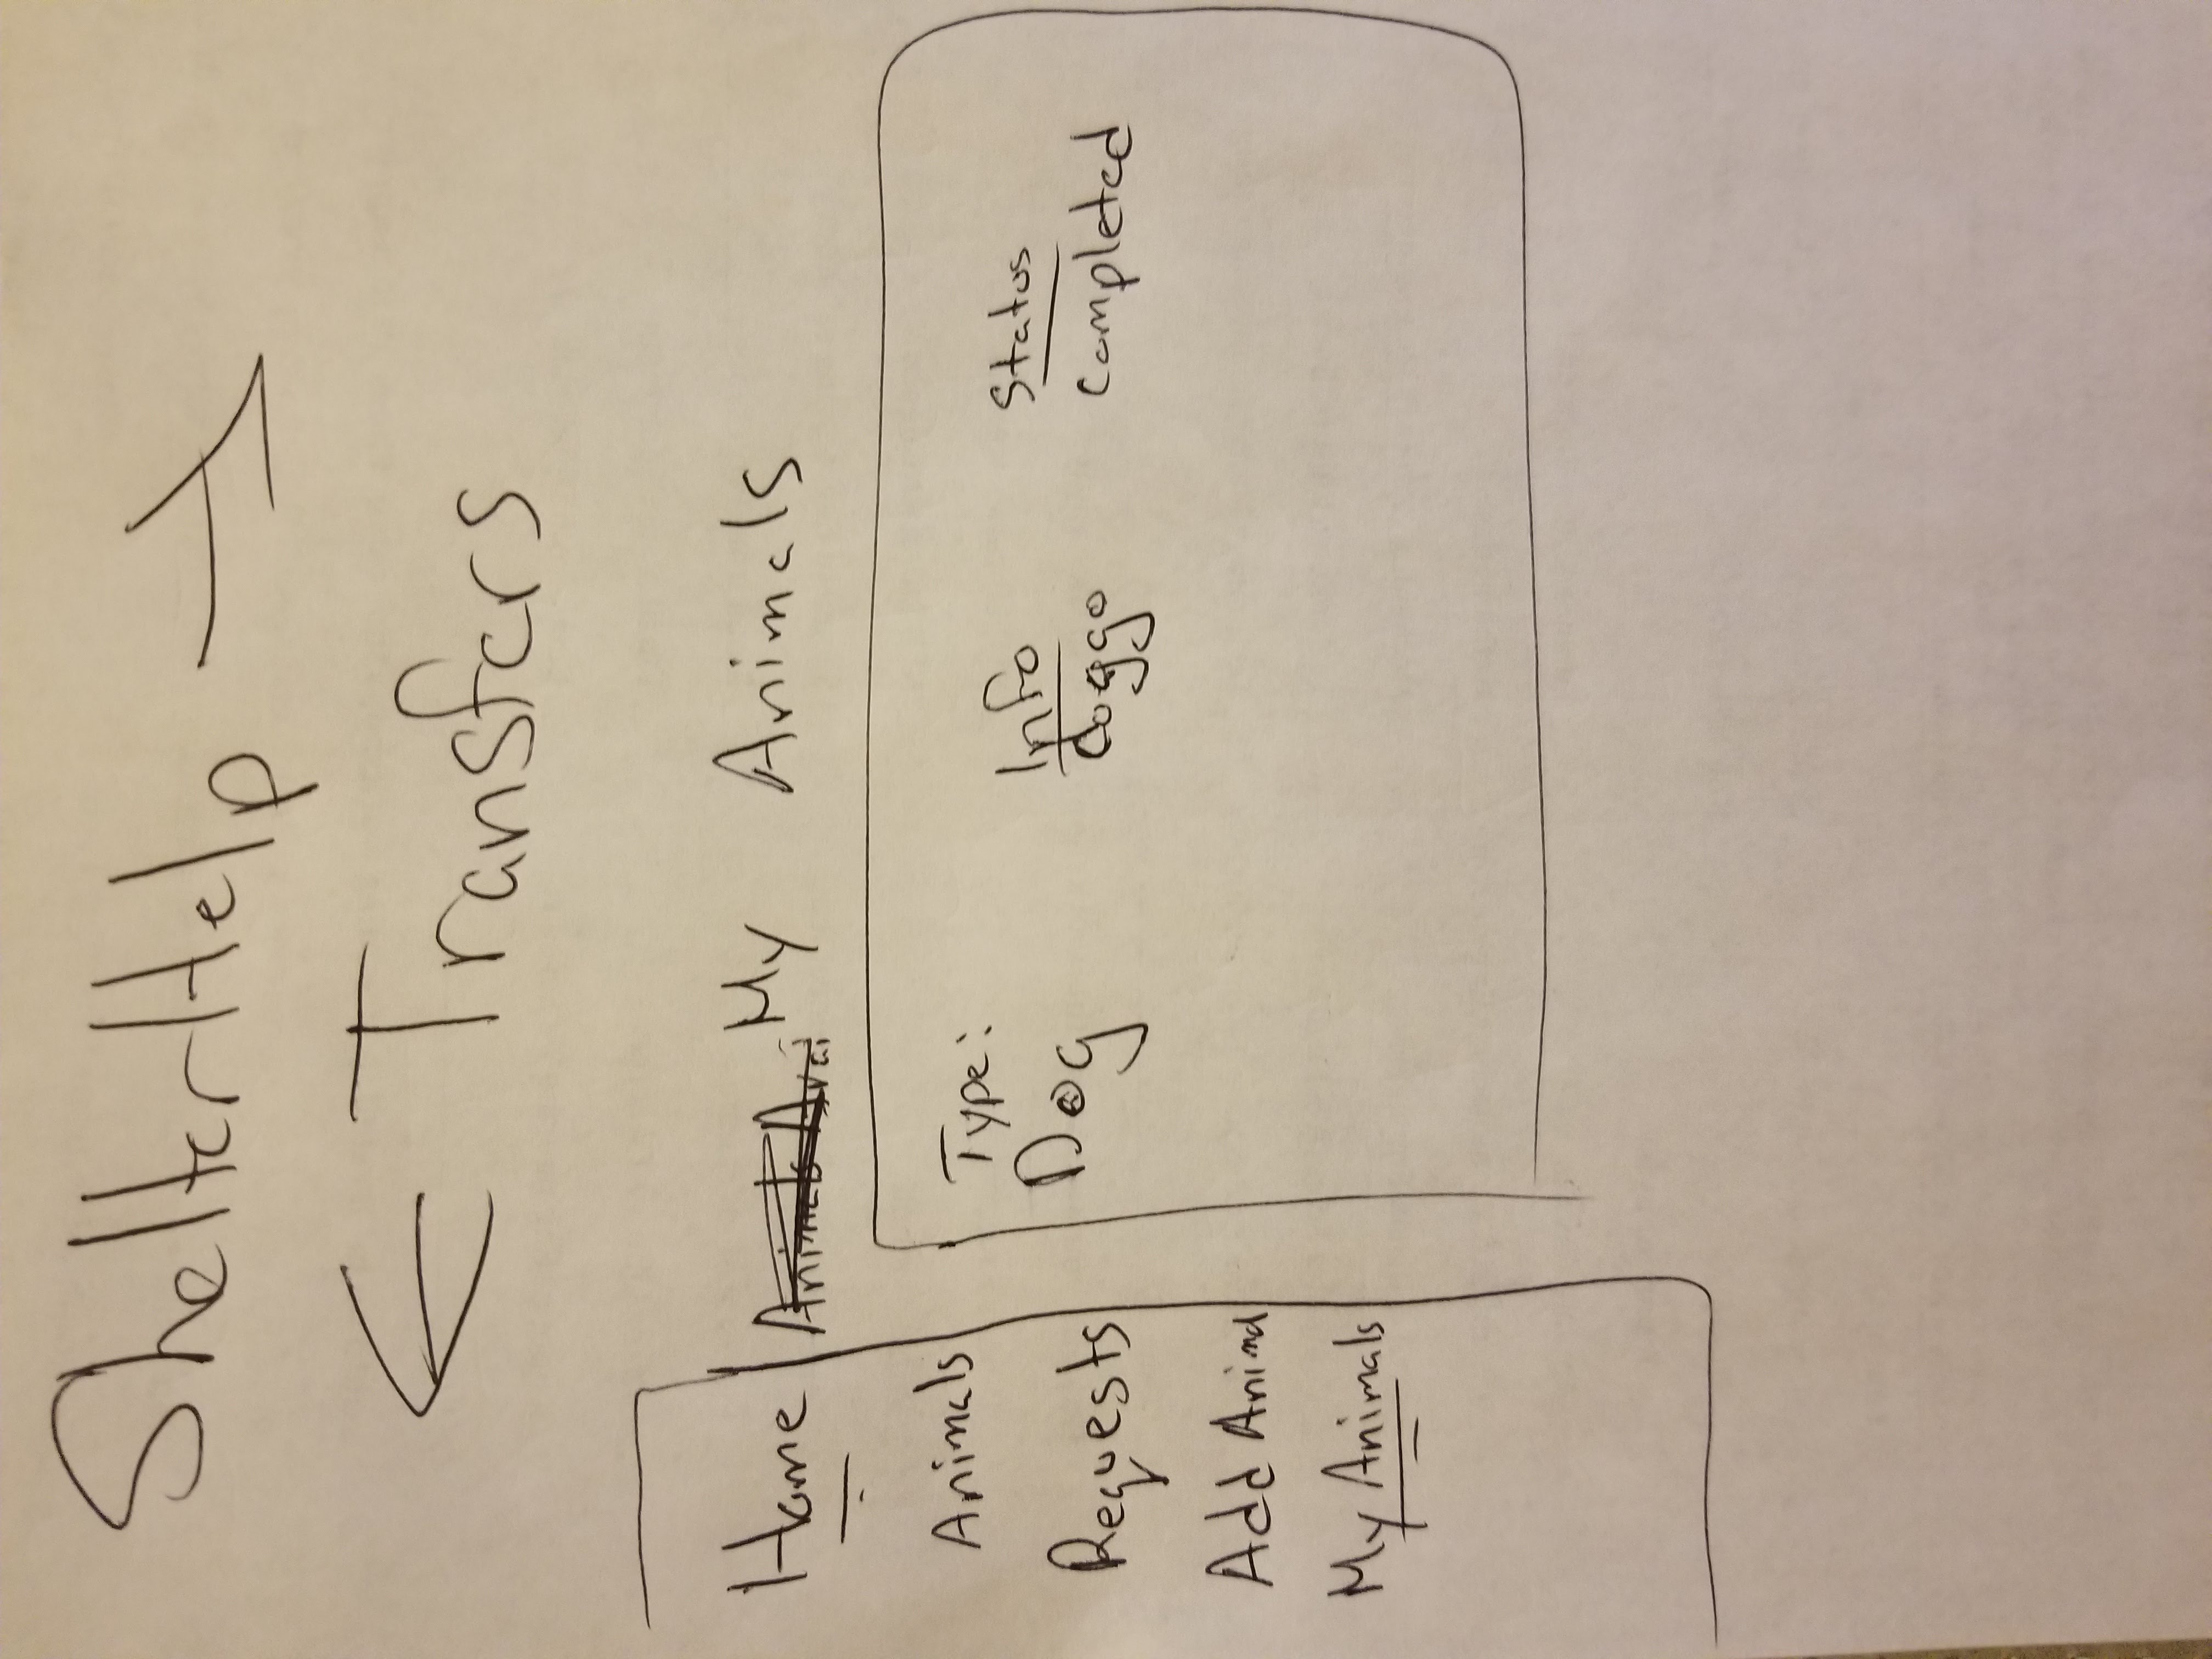 ShelterHelp →
← Transfers
Home
Animals
Requests
Add Animal
My Animals
Animals Avai My Animals
Type:
Dog
Info
doggo
Status
completed